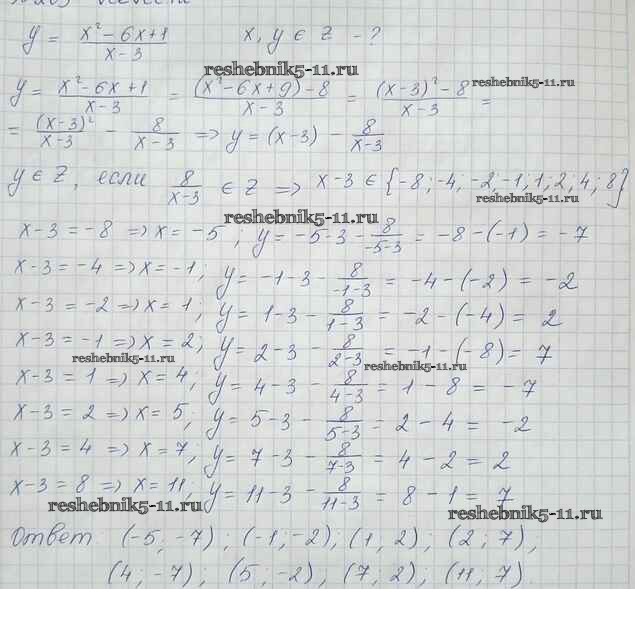 y = x² − 6x + 1 / x − 3    x, y ∈ Z − ?
reshebnik5-11.ru
y = x² − 6x + 1 / x − 3 = (x² − 6x + 9) − 8 / x − 3 = (x − 3)² − 8 / x − 3 =
reshebnik5-11.ru
= (x − 3)² / x − 3 − 8 / x − 3 => y = (x − 3) − 8 / x − 3
y ∈ Z, если 8 / x − 3 ∈ Z => x − 3 ∈ {−8; −4; −2; −1; 1; 2; 4; 8}
reshebnik5-11.ru
reshebnik5-11.ru
x − 3 = −8 => x = −5, y = −5 − 3 − 8 / −5−3 = −8 − (−1) = −7
x − 3 = −4 => x = −1; y = −1 − 3 − 8 / −1−3 = −4 − (−2) = −2
x − 3 = −2 => x = 1; y = 1 − 3 − 8 / 1−3 = −2 − (−4) = 2
x − 3 = −1 => x = 2; y = 2 − 3 − 8 / 2−3 = −1 − (−8) = 7
reshebnik5-11.ru
reshebnik5-11.ru
x − 3 = 1 => x = 4; y = 4 − 3 − 8 / 4−3 = 1 − 8 = −7
x − 3 = 2 => x = 5, y = 5 − 3 − 8 / 5−3 = 2 − 4 = −2
x − 3 = 4 => x = 7, y = 7 − 3 − 8 / 7−3 = 4 − 2 = 2
x − 3 = 8 => x = 11, y = 11 − 3 − 8 / 11−3 = 8 − 1 = 7
reshebnik5-11.ru
reshebnik5-11.ru
Ответ: (−5; −7); (−1; −2); (1; 2); (2; 7);
(4; −7); (5; −2); (7; 2); (11; 7).